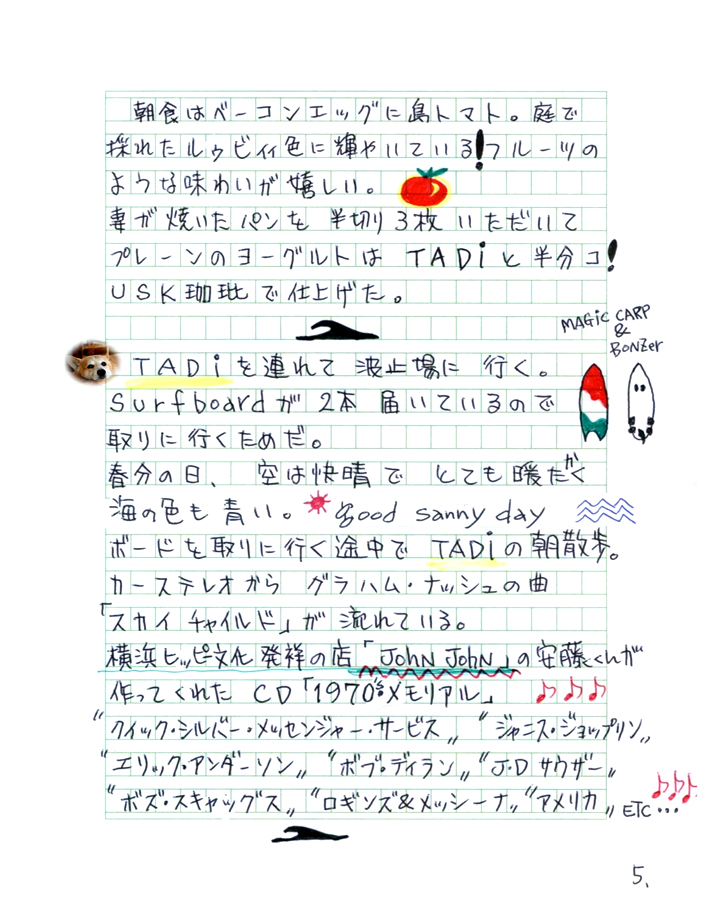 朝食はベーコンエッグに島トマト。庭で
採れたルゥビィ色に輝やいている!フルーツの
ような味わいが嬉しい。
妻が焼いたパンを 半切り3枚 いただいて
プレーンのヨーグルトは TADiと半分コ!
USK珈琲で仕上げた。
MAGIC CARP
&
BONZER
TADiを連れて 波止場に 行く。
Surfboardが 2本 届いているので
取りに行くためだ。
春分の日、 空は快晴で とても暖だかく
海の色も青い。 good sanny day
ボードを取りに行く途中で TADiの朝散歩。
カーステレオから グラハム・ナッシュの曲
「スカイ チャイルド」が 流れている。
横浜ヒッピ文化発祥の店「JOhN JOhN」の安藤くんが
作ってくれた CD「1970'sメモリアル」
“クイック・シルバー・メッセンジャー・サービス〟 “ジャニス・ジョップリン〟
“エリック・アンダーソン〟 “ボブ・ディラン〟 “J・D サウザー〟
“ボズ・スキャッグス〟 “ロギンズ&メッシーナ〟 “アメリカ〟 ETC・・・
5.